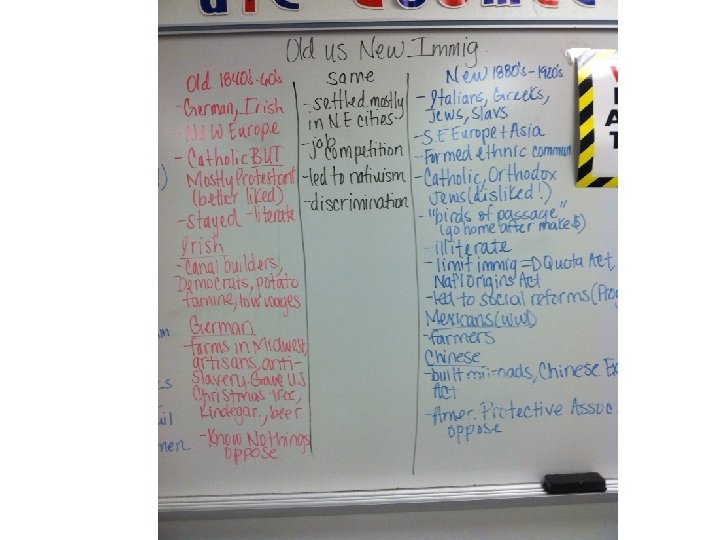 Old us New Immig.
Old 1840's-60's
-German, Irish
-N+W Europe
-Catholic BUT
Mostly Protestant
(better liked)
-stayed -literate
Irish
-Canal builders,
Democrats, potato
famine, low wages
German
-farms in Midwest,
artisans, anti-
slavery. Gave U.S
Christmas tree,
Kindegar., beer
-Know Nothings
oppose
same
-settled mostly
in N.E cities
-job
competition
-led to nativism
-discrimination
New 1880's-1920's
-Italians, Greeks,
Jews, Slavs
-S.E Europe + Asia
-Formed ethnic commun
-Catholic, Orthodox
Jews (disliked!)
-"birds of passage"
(go home after make $)
-illiterate
-limit immig = Quota Act,
Nat'l Origins Act
-led to social reforms (Prog
Mexicans (WWI)
-farmers
Chinese
-built railroads, Chinese Ex
Act
-Amer. Protective Assoc.
oppose